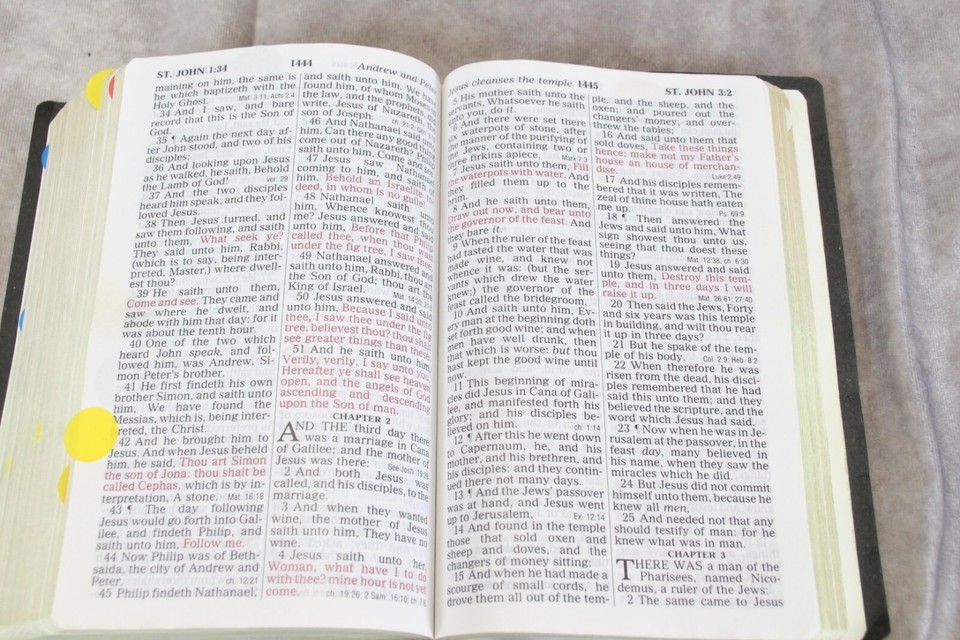 ST. JOHN 1:34
1444
Andrew and Pet
maining on him, the same is
he which baptizeth with the
Holy Ghost. Mat. 3:11; Acts 2:4
34 And I saw, and bare
record that this is the Son of
God.
35 ¶ Again the next day af-
ter John stood, and two of his
disciples;
36 And looking upon Jesus
as he walked, he saith, Behold
the Lamb of God! ver. 29
37 And the two disciples
heard him speak, and they fol-
lowed Jesus.
38 Then Jesus turned, and
saw them following, and saith
unto them, What seek ye?
They said unto him, Rabbi,
(which is to say, being inter-
preted, Master,) where dwell-
est thou?
39 He saith unto them,
Come and see. They came and
saw where he dwelt, and
abode with him that day: for it
was about the tenth hour.
40 One of the two which
heard John speak, and fol-
lowed him, was Andrew, Si-
mon Peter's brother.
41 He first findeth his own
brother Simon, and saith unto
him, We have found the
Messias, which is, being inter-
preted, the Christ.
42 And he brought him to
Jesus. And when Jesus beheld
him, he said, Thou art Simon
the son of Jona: thou shalt be
called Cephas, which is by in-
terpretation, A stone. Mat. 16:18
43 ¶ The day following
Jesus would go forth into Gal-
ilee, and findeth Philip, and
saith unto him, Follow me.
44 Now Philip was of Beth-
saida, the city of Andrew and
Peter. ch. 12:21
45 Philip findeth Nathanael,
and saith unto him, We have
found him, of whom Moses
the law, and the prophets,
write, Jesus of Nazareth,
son of Joseph. ch. 21:2
46 And Nathanael said unto
him, Can there any good thing
come out of Nazareth? Philip
saith unto him, Come and see.
47 Jesus saw Nathanael
coming to him, and saith
him, Behold an Israelite in-
deed, in whom is no guile!
48 Nathanael saith unto
him, Whence knowest thou
me? Jesus answered and said
unto him, Before that Philip
called thee, when thou wast
under the fig tree, I saw thee.
49 Nathanael answered and
saith unto him, Rabbi, thou art
the Son of God; thou art the
King of Israel. Mat. 14:33
50 Jesus answered and said
unto him, Because I said unto
thee, I saw thee under the fig
tree, believest thou? thou shalt
see greater things than these.
51 And he saith unto him,
Verily, verily, I say unto you,
Hereafter ye shall see heaven
open, and the angels of God
ascending and descending
upon the Son of man.
CHAPTER 2
AND THE third day there
was a marriage in Cana
of Galilee; and the mother of
Jesus was there: See Josh. 19:28
2 And both Jesus was
called, and his disciples, to the
marriage.
3 And when they wanted
wine, the mother of Jesus
saith unto him, They have no
wine.
4 Jesus saith unto her,
Woman, what have I to do
with thee? mine hour is not yet
come. ch. 19:26; 2 Sam. 16:10; ch. 7:6
Jesus cleanses the temple
1445
ST. JOHN 3:2
5 His mother saith unto the
servants, Whatsoever he saith
unto you, do it.
6 And there were set there
x waterpots of stone, after
the manner of the purifying of
the Jews, containing two or
three firkins apiece. Mark 7:3
7 Jesus saith unto them, Fill
the waterpots with water. And
they filled them up to the
brim.
8 And he saith unto them,
Draw out now, and bear unto
the governor of the feast. And
they bare it.
9 When the ruler of the feast
had tasted the water that was
made wine, and knew not
whence it was: (but the ser-
vants which drew the water
knew;) the governor of the
feast called the bridegroom,
10 And saith unto him, Ev-
ery man at the beginning doth
set forth good wine; and when
men have well drunk, then
that which is worse: but thou
hast kept the good wine until
now.
11 This beginning of mira-
cles did Jesus in Cana of Gali-
lee, and manifested forth his
glory; and his disciples be-
lieved on him. ch. 1:14
12 ¶ After this he went down
to Capernaum, he, and his
mother, and his brethren, and
his disciples: and they contin-
ued there not many days.
13 ¶ And the Jews' passover
was at hand, and Jesus went
up to Jerusalem, Ex. 12:14
14 And found in the temple
those that sold oxen and
sheep and doves, and the
changers of money sitting:
15 And when he had made a
scourge of small cords, he
drove them all out of the tem-
ple, and the sheep, and the
oxen; and poured out the
changers' money, and over-
threw the tables;
16 And said unto them that
sold doves, Take these things
hence; make not my Father's
house an house of merchan-
dise. Luke 2:49
17 And his disciples remem-
bered that it was written, The
zeal of thine house hath eaten
me up. Ps. 69:9
18 ¶ Then answered the
Jews and said unto him, What
sign shewest thou unto us,
seeing that thou doest these
things? Mat. 12:38; ch. 6:30
19 Jesus answered and said
unto them, Destroy this tem-
ple, and in three days I will
raise it up. Mat. 26:61; 27:40
20 Then said the Jews, Forty
and six years was this temple
in building, and wilt thou rear
it up in three days?
21 But he spake of the tem-
ple of his body. Col. 2:9; Heb. 8:2
22 When therefore he was
risen from the dead, his disci-
ples remembered that he had
said this unto them; and they
believed the scripture, and the
word which Jesus had said.
23 ¶ Now when he was in Je-
rusalem at the passover, in the
feast day, many believed in
his name, when they saw the
miracles which he did.
24 But Jesus did not commit
himself unto them, because he
knew all men,
25 And needed not that any
should testify of man: for he
knew what was in man.
CHAPTER 3
THERE WAS a man of the
Pharisees, named Nico-
demus, a ruler of the Jews:
2 The same came to Jesus